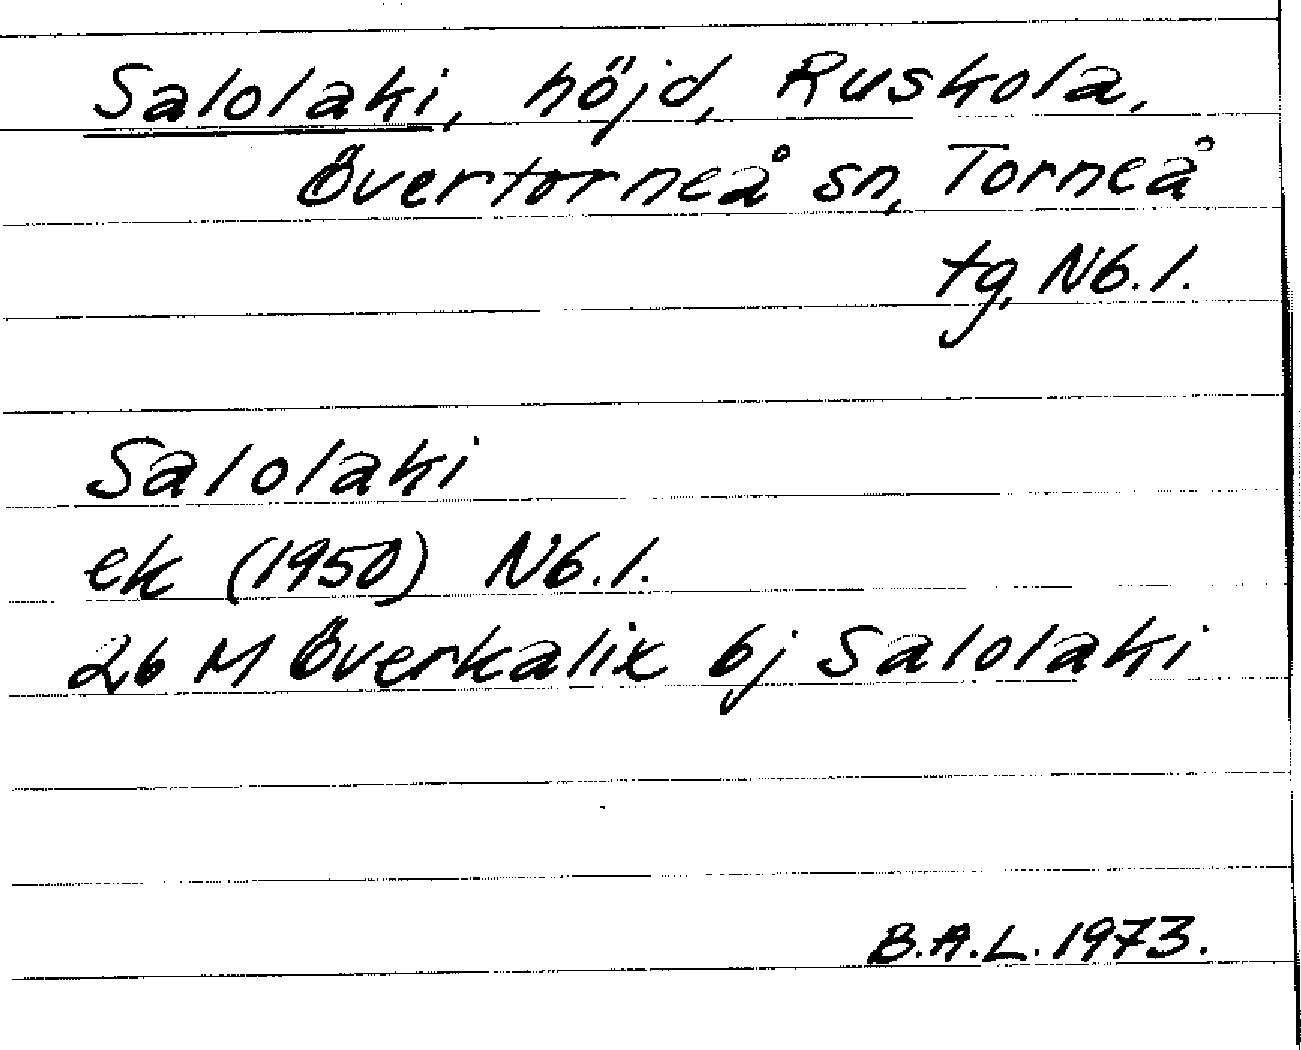 Salolaki, höjd, Ruskola,
Övertorneå sn, Torneå
tg, Nb.l.
Salolaki
ek (1950) Nb.l.
26 M Överkalix 6j Salolaki
B.A.L. 1973.